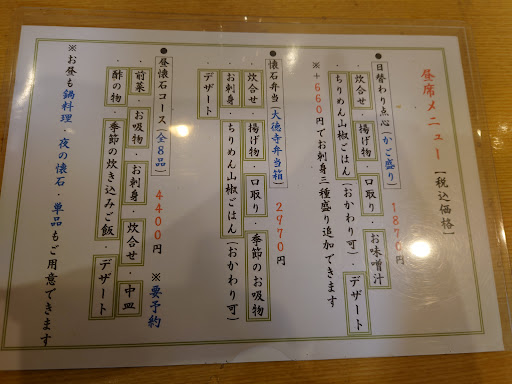 昼席メニュー【税込価格】
●日替わり点心(かご盛り) 1870円
・炊合せ・揚げ物・口取り・お味噌汁
・ちりめん山椒ごはん(おかわり可)・デザート
※+660円でお刺身三種盛り追加できます
●懐石弁当(大徳寺弁当箱) 2970円
・炊合せ・揚げ物・口取り・季節のお吸物
・お刺身・ちりめん山椒ごはん(おかわり可)
・デザート
●昼懐石コース(全8品) 4400円 ※要予約
・前菜・お吸物・お刺身・炊合せ・中皿
・酢の物・季節の炊き込みご飯・デザート
※お昼も鍋料理・夜の懐石・単品もご用意できます